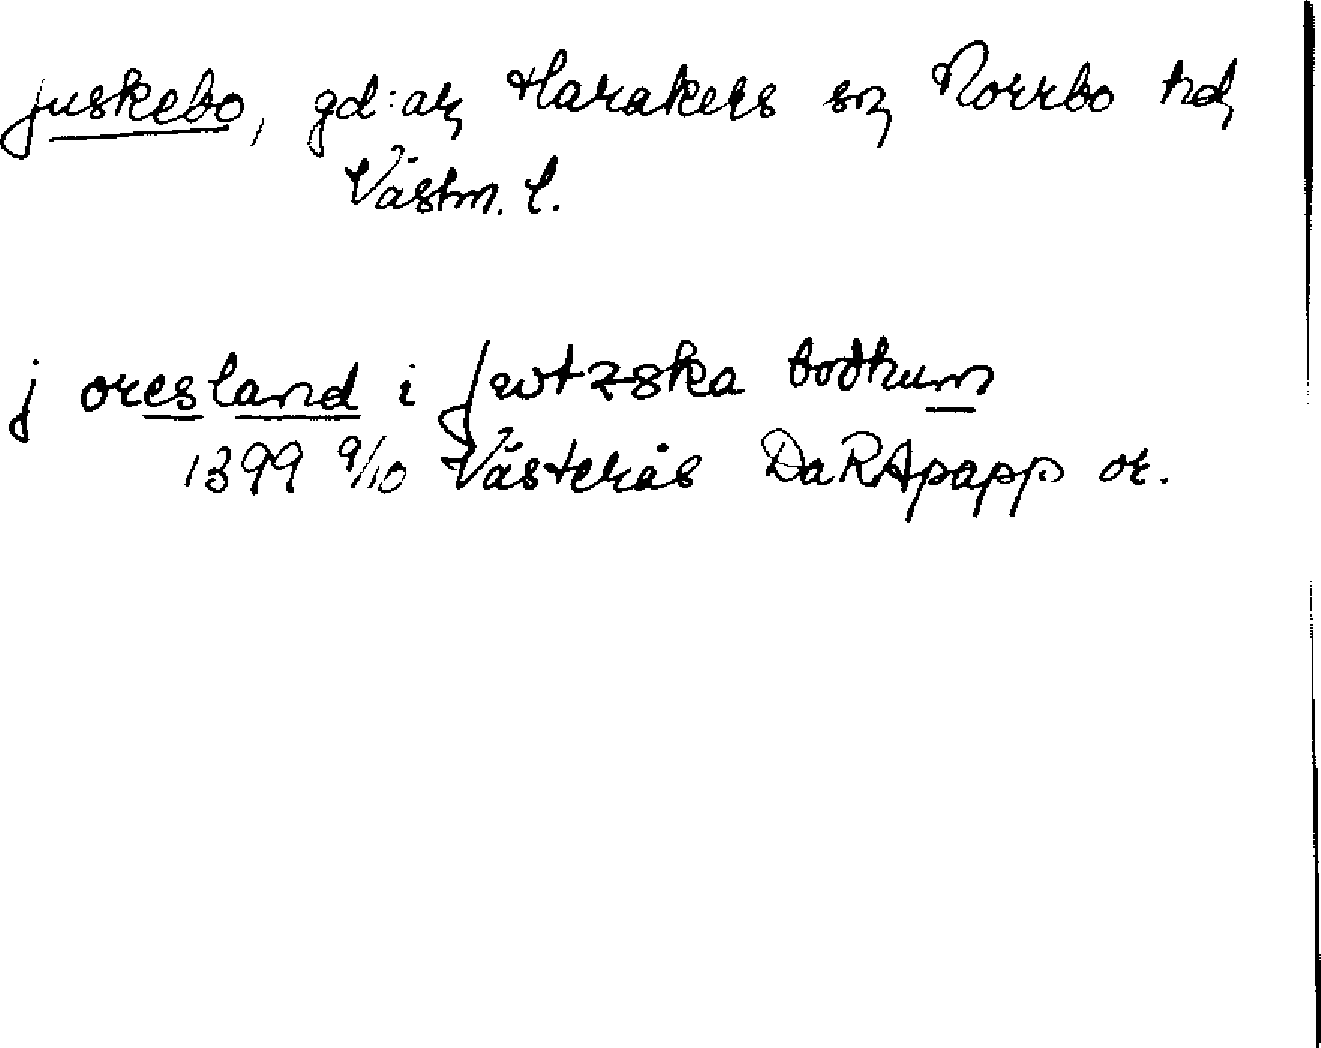 juskebo, gd:ar, Harakers sn, Norrbo hd,
Västm. l.
j oresland i Jwtzska bodhum
1399 9/10 Västerås DaRApapp or.